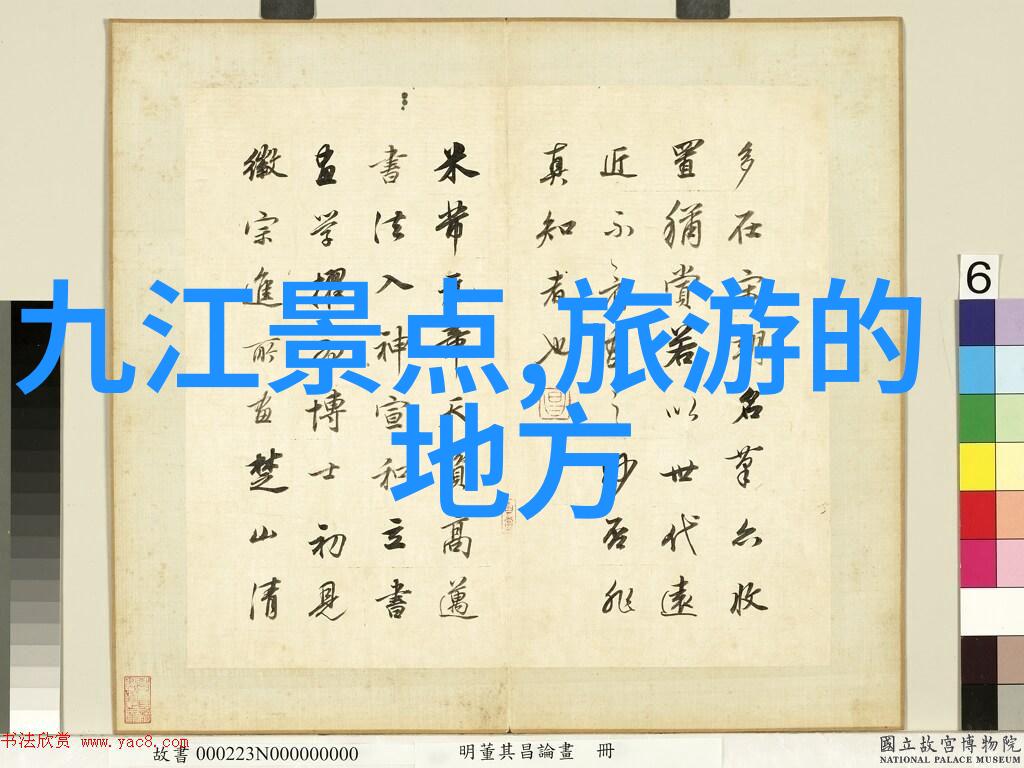 九江景点,旅游的
地方
多在宋朝名筆亦收
置猶賞若以世代遠
近不畫之妙否非
真知者也
米芾元章天資高邁
書法入神宣和立書
畫學擢為博士初見
徽宗進所畫楚山清
6
书法欣赏 www.yac8.com
故書 000223N000000000
明董其昌論畫 冊
國立故宮博物院
NATIONAL PALACE MUSEUM